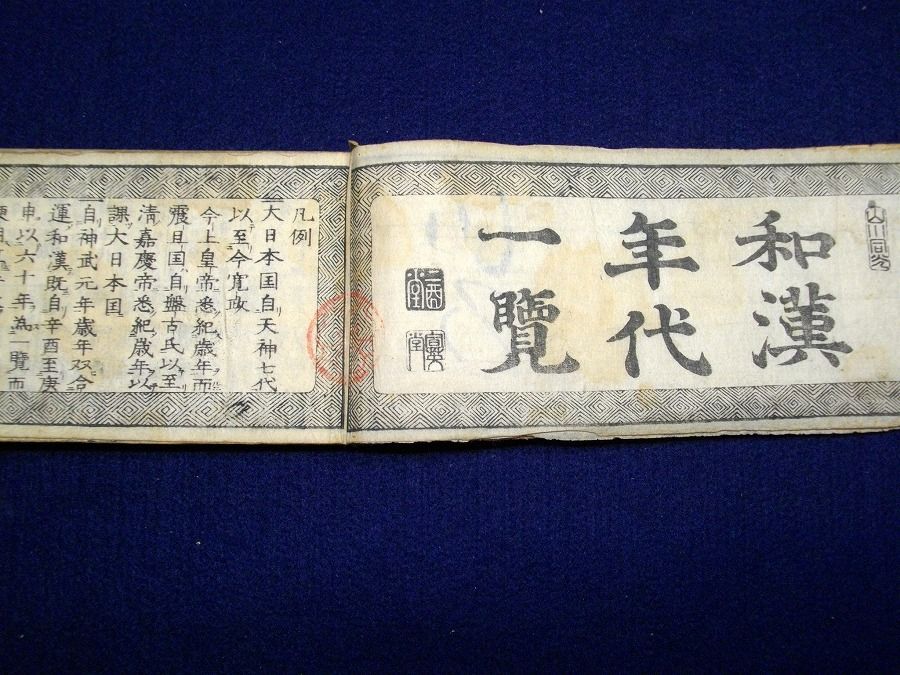 和漢
年代
一覽
凡例
大日本国自天神七代
以至今寛政
今上皇帝悉紀歳年而
震旦国自盤古氏以至
清嘉慶帝悉紀歳年以
課大日本国
自神武元年歳年双合
運和漢既自辛酉至庚
申以六十年為一覽而